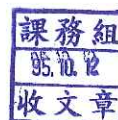 課務組
95.10.12
收文章